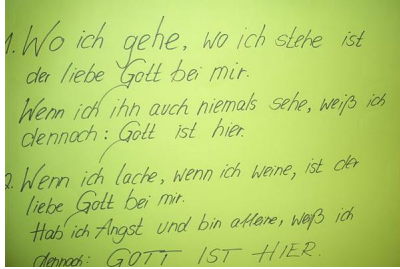 1. Wo ich gehe, wo ich stehe ist
der liebe Gott bei mir.
Wenn ich ihn auch niemals sehe, weiß ich
dennoch: Gott ist hier.
2. Wenn ich lache, wenn ich weine, ist der
liebe Gott bei mir.
Hab ich Angst und bin alleine, weiß ich
dennoch: GOTT IST HIER.